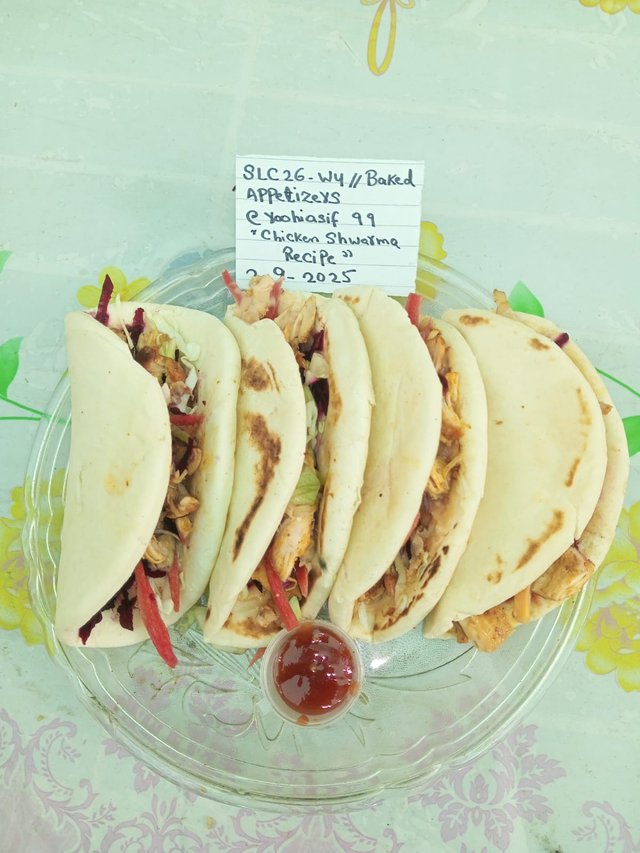 SLC26-W4//Baked
Appetizers
@roohiasif 99
"Chicken Shwarma
Recipe"
2-9-2025